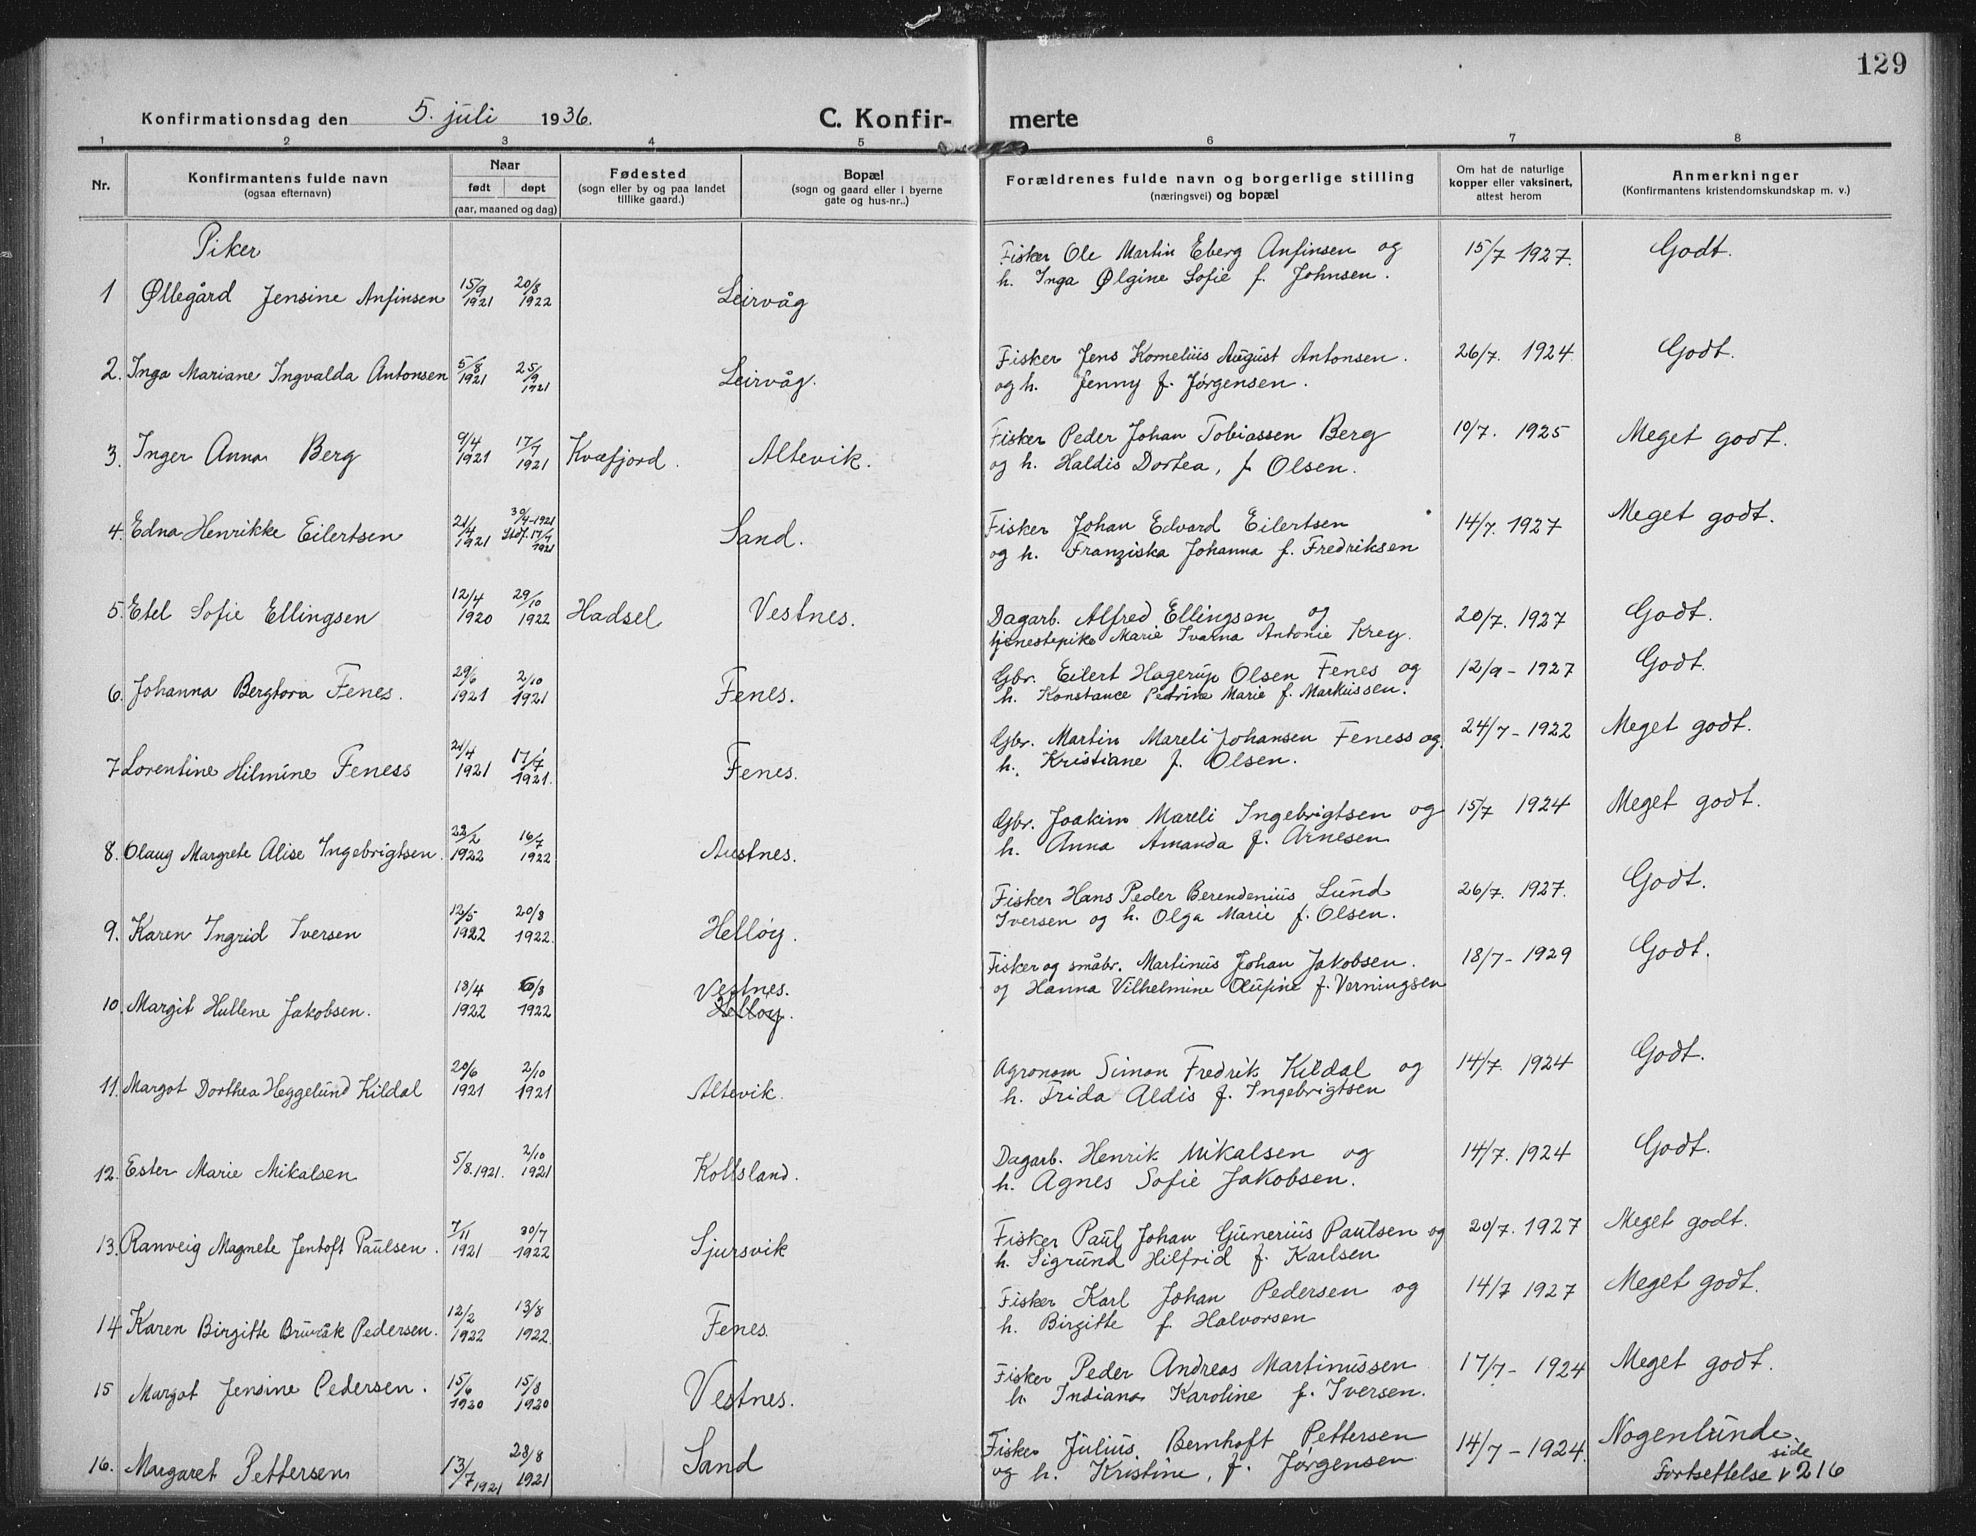 129
Konfirmationsdag den 5. juli 1936.
C. Konfir- merte
1 2 3 4 5 6 7 8
Nr.
Konfirmantens fulde navn
(ogsaa efternavn)
Naar
født døpt
(aar, maaned og dag)
Fødested
(sogn eller by og paa landet
tillike gaard.)
Bopæl
(sogn og gaard eller i byerne
gate og hus-nr..)
Forældrenes fulde navn og borgerlige stilling
(næringsvei) og bopæl
Om hat de naturlige
kopper eller vaksinert,
attest herom
Anmerkninger
(Konfirmantens kristendomskundskap m. v.)
Piker
Fisker Ole Martin Eberg Anfinsen og 15/7 1927. Godt.
h. Inga Ølgine Sofie f. Johnsen.
1 Øllegård Jensine Anfinsen 15/9 1921 20/8 1922 Leirvåg
Fisker Jens Kornelius August Antonsen. 26/7. 1924. Godt.
2. Inga Mariane Ingvalda Antonsen 5/8 1921 25/9 1921 Leirvåg.
og h. Jenny f. Jørgensen.
Fisker Peder Johan Tobiassen Berg 10/7. 1925 Meget godt.
3. Inger Anna Berg 9/4 1921 17/7 1921 Kvæfjord. Altevik.
og h. Haldis Dortea, f. Olsen.
Fisker Johan Edvard Eilertsen 14/7. 1927 Meget godt.
4. Edna Henrikke Eilertsen 21/4 1921 30/4-1921 Stdf. 17/7 1921 Sand.
og h. Franziska Johanna f. Fredriksen
5. Etel Sofie Ellingsen 12/4 1920 29/10 1922 Hadsel Vestnes. Dagarb. Alfred Ellingsen og 20/7. 1927 Godt.
tjenestepike Marie Ivarna Antonie Krey.
Gbr. Eilert Hagerup Olsen Fenes og 12/9 - 1927 Godt.
6. Johanna Bergtora Fenes. 29/6 1921 2/10 1921 Fenes.
h. Konstance Petrine Marie f. Markussen.
Gbr. Martin Mareli Johansen Feness og 24/7 - 1922 Meget godt.
7 Lorentine Hilmine Feness 21/4 1921 17/7 1921. Fenes.
h. Kristiane f. Olsen.
Gbr. Joakim Mareli Ingebrigtsen og 15/7 1924 Meget godt.
8. Olaug Margrete Alise Ingebrigtsen. 22/2 1922 16/7 1922 Austnes.
h. Anna Amanda f. Arnesen
Fisker Hans Peder Berendenius Lund 26/7. 1927. Godt.
9. Karen Ingrid Iversen 12/5 1922 20/8 1922. Helløy.
Iversen og h. Olga Marie f. Olsen.
Fisker og småbr. Martinus Johan Jakobsen. 18/7 - 1929 Godt.
10. Margit Hullene Jakobsen. 18/4 1922 6/8 1922 Vestnes.
Helløy.
og Hanna Vilhelmine Olufine f. Verningsen
Agronom Simon Fredrik Kildal og 14/7. 1924 Godt.
11. Margot Dorthea Heggelund Kildal 20/6 1921 2/10 1921 Altevik.
h. Frida Aldis f. Ingebrigtsen
Dagarb. Henrik Mikalsen og 14/7. 1924 Godt.
12. Ester Marie Mikalsen 5/8.1921. 2/10 1921 Kollsland.
h. Agnes Sofie Jakobsen.
Fisker Paul Johan Gunerius Paulsen og 20/7. 1927 Meget godt.
13. Ranveig Magnete Jentoft Paulsen. 7/11 1921 30/7 1922 Sjursvik
h. Sigrund Hilfrid f. Karlsen
Fisker Karl Johan Pedersen og 14/7 1927 Meget godt.
14 Karen Birgitte Pedersen. 12/2 1922 13/8 1922. Fenes.
h. Birgitte f. Halvorsen
Fisker Peder Andreas Martinussen 17/7 - 1924 Meget godt.
15 Margot Jensine Pedersen. 15/6 1920 15/8 1920 Vestnes.
h. Indiana Karoline f. Iversen.
Fisker Julius Bernhoft Pettersen 14/7 - 1924. Nogenlunde
16. Margaret Pettersen 13/7 1921 28/8 1921 Sand
og h. Kristine, f. Jørgensen
Fortsettelse side 216